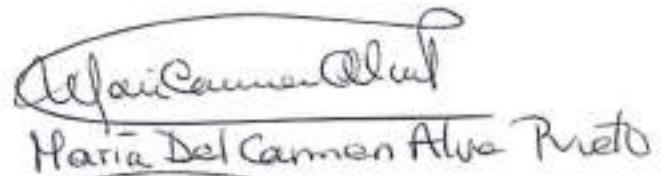 MariCarmenAlva
María Del Carmen Alva Prieto